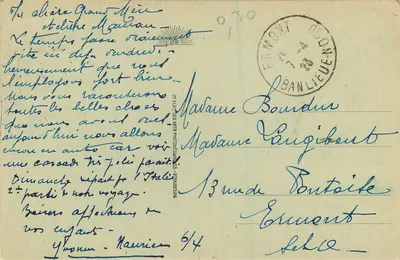 Ma chère Grand'Mère
et chère Maman
Le temps passe vraiment
vite ici dès vendredi
heureusement que nous
l'employons fort bien
nous vous raconterons
toutes les belles choses
que nous avons vues
aujourd'hui nous allons
en autre car voir
une cascade très jolie paraît-il
Dimanche départ pr l'Italie
2e partie de notre voyage.
Baisers affectueux de
vos enfants
Yvonne - Maurice
6/4
ERMONT
7 - 4
23
BANLIEUE
Madame Bourdin
Madame Langibout
13 rue de Pontoise
Ermont
S et O